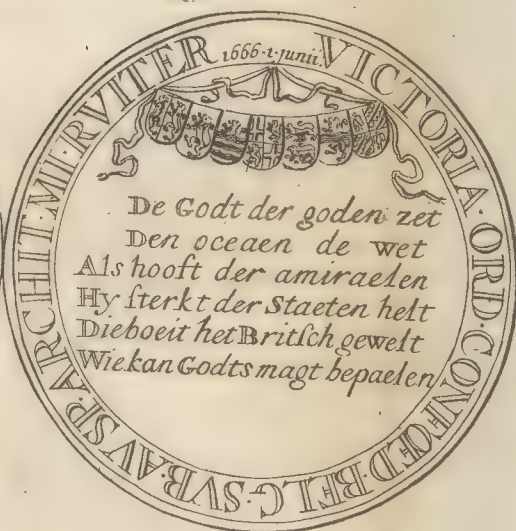 VICTORIA · ORD · CONFŒD · BELG · SVB · AVSP · ARCHIT · MI · RVITER
1666 · 1 · junii
De Godt der goden zet
Den oceaen de wet
Als hooft der amiraelen
Hy ſterkt der Staeten helt
Dieboeit het Britſch gewelt
Wie kan Godts magt bepaelen